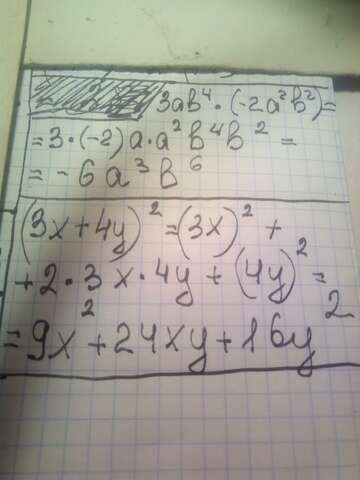 3ab⁴·(-2a²b²)=
=3·(-2)a·a²b⁴b²=
=-6a³b⁶
(3x+4y)²=(3x)²+
+2·3x·4y+(4y)²=
=9x²+24xy+16y²